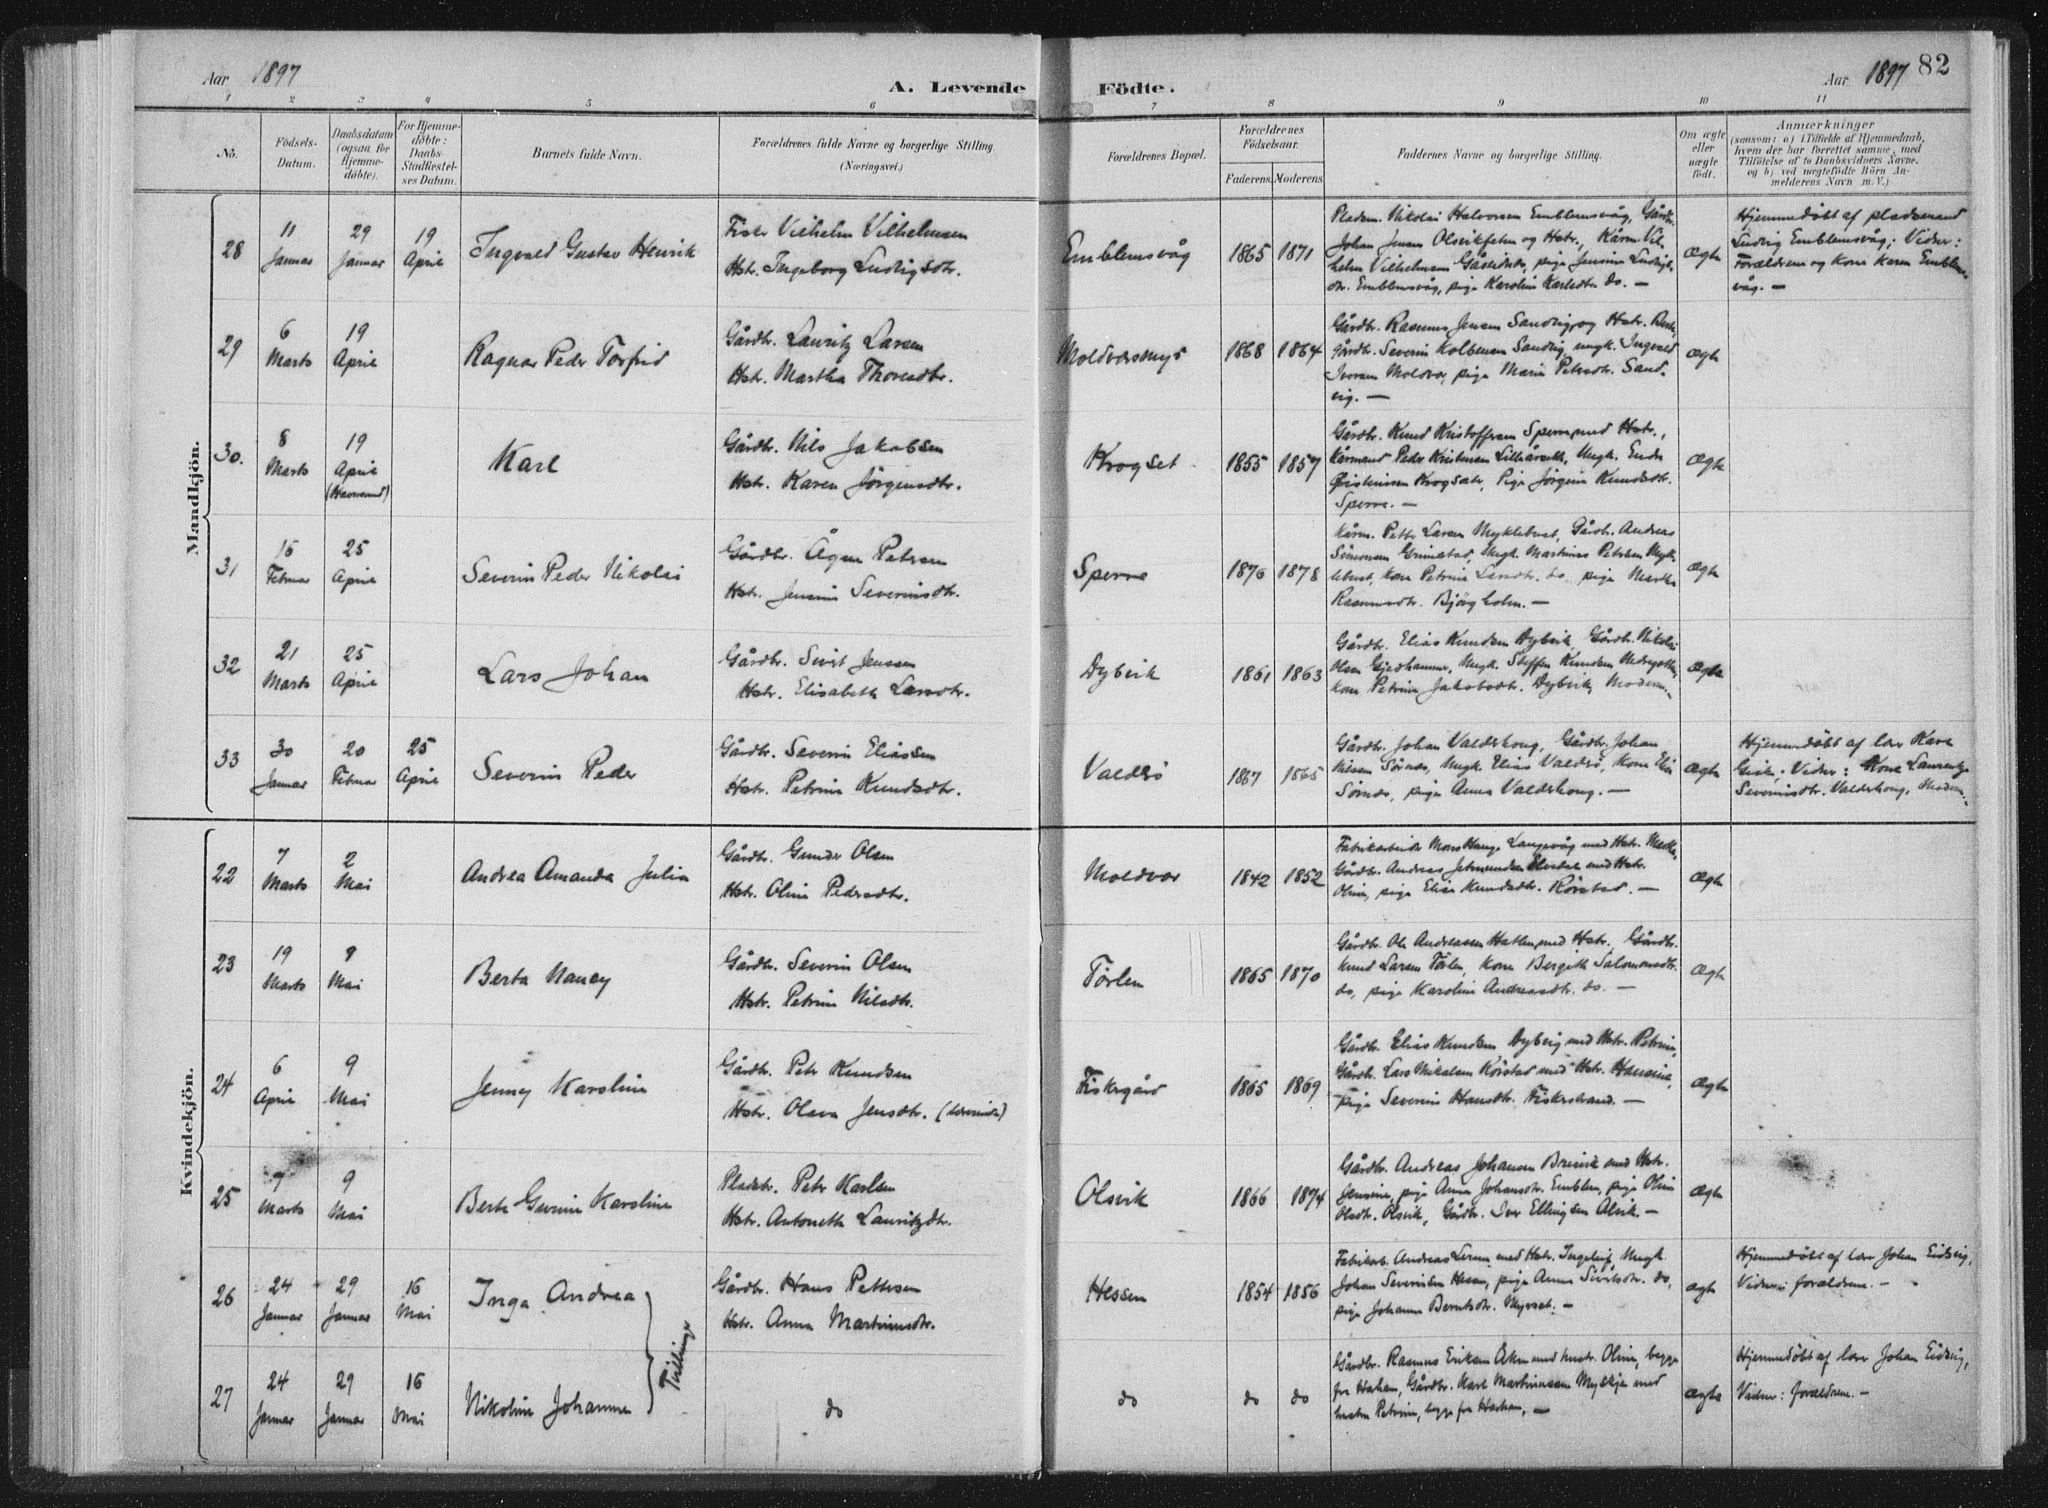 Aar 1897
A. Levende Födte.
Aar 1897
82
1 2 3 4 5 6 7 8 9 10 11
No.
Födsels-
Datum.
Daabsdatum
(ogsaa for
Hjemme-
döbte).
For Hjemme-
döbte:
Daabs-
Stadfæstel-
ses Datum.
Barnets fulde Navn.
Forældrenes fulde Navne og borgerlige Stilling
(Næringsvei.)
Forældrenes Bopæl.
Forældrenes
Födselsaar.
Faderens. Moderens.
Faddernes Navne og borgerlige Stilling.
Om ægte
eller
uægte
födt.
Anmærkninger
(saasom: a) i Tilfælde af Hjemmedaab,
hvem der har forrettet samme, med
Tilföielse af to Daabsvidners Navne.
og b) ved uægtefödte Börn An-
melderens Navn m. V.)
Mandkjön.
28
11
Januar
29
Januar
19
April
Ingvald Gustav Henrik
Fisker Vilhelm Vilhelmsen
Hstr. Ingeborg Ludvigsdtr.
Emblemsvåg
1865 1871
Pladsm. Nikolai Halvorsen Emblemsvåg, Gårdbr.
Johan Jensen Olsvikfeten og Hstr., Kårm. Vil-
helm Vilhelmsen, pige Jensine Ludvigs-
dtr. Emblemsvåg, pige Karoline Karlsdtr. do. —
Ægte
Hjemmedöbt af pladsmand
Ludvig Emblemsvåg; Vidner:
Forældrene og Kone Karen Emblems-
våg. —
29
6
Marts
19
April
Ragnar Peder Torfrid
Gårdbr. Lauritz Larsen
Hstr. Martha Thomasdtr.
Moldværsmyr
1868 1864
Gårdbr. Rasmus Jensen Sandvig og Hstr. Berte,
Gårdbr. Severin Kolbensen Sandvig, ungk. Ingvald
Iversen Moldvær, pige Marie Petersdtr. Sand-
vig. —
ægte
30.
8
Marts
19
April
(Havnsund)
Karl
Gårdbr. Nils Jakobsen
Hstr. Karen Jörgensdtr.
Krogset
1855 1857
Gårdbr. Knud Kristoffersen Sperre med Hstr.,
Kårmand Peder Kristensen, Ungk. Endre
Kristensen Krogsæter, Pige Jörgine Knudsdtr.
Sperre. —
Ægte
31
16
Februar
25
April
Severin Peder Nikolai
Gårdbr. Ågen Petersen
Hstr. Jensine Severinsdtr.
Sperre
1876 1878
Kårm. Petter Larsen Myklebust, Gårdbr. Andreas
Simonsen Grimstad, Ungk. Martinus Petersen Mykle-
bust, kone Petrine Larsdtr. do, pige Martha
Rasmusdtr. Bjørgholm. —
Ægte
32
21
Marts
25
April
Lars Johan
Gårdbr. Sivert Jensen
Hstr. Elisabeth Larsdtr.
Dybvik
1861 1863
Gårdbr. Elias Knudsen Dybvik, Gårdbr. Nikolai
Olsen Gjeshammer, Ungk. Steffen Knudsen,
kone Petrine Jakobsdtr. Dybvik, Moderen. —
Ægte
33
30
Januar
20
Februar
25
April
Severin Peder
Gårdbr. Severin Eliassen
Hstr. Petrine Knudsdtr.
Valderö
1867 1865
Gårdbr. Johan Valderhoug, Gårdbr. Johan
Nilsen Sørnes, Ungk. Elias Valderö, Kone Elen
Sørnes, pige Anna Valderhoug. —
Ægte
Hjemmedöbt af lær. Karl
Giske; Vidner: Kone Laurentze
Severinsdtr. Valderhoug, Moderen. —
Kvindekjön.
22
7
Marts
2
Mai
Andrea Amanda Julia
Gårdbr. Gunder Olsen
Hstr. Oline Pedersdtr.
Moldvær
1842 1852
Fabrikarbeider Mons Hauge Langevåg med Hstr. Marthe,
Gårdbr. Andreas Jetmundsen med Hstr.
Oline, pige Elise Knudsdtr. Rörstad. —
Ægte
23
19
Marts
9
Mai
Berta Nancy
Gårdbr. Severin Olsen
Hstr. Petrine Nilsdtr.
Törlen
1865 1870
Gårdbr. Ole Andreassen Hatlen med Hstr., Gårdbr.
Knud Larsen Törlen, Kone Bergith Salomonsdtr.
do, pige Karoline Andreasdtr. do. —
Ægte
24
6
April
9
Mai
Jenny Karoline
Gårdbr. Peter Knudsen
Hstr. Olava Jensdtr.
Fiskergård
1865 1869
Gårdbr. Elias Knudsen Dybvig med Hstr. Petrine,
Gårdbr. Lars Mikalsen Rörstad med Hstr. Hansine,
pige Severine Hansdtr. Fiskerstrand. —
Ægte
25
7
Marts
9
Mai
Berte Gurine Karoline
Pladsbr. Peter Karlsen
Hstr. Antonette Lauritzdtr.
Olsvik
1866 1874
Gårdbr. Andreas Johansen Breivik med Hstr.
Jensine, pige Anna Johansdtr. Emblem, pige Oline
Olsdtr. Olsvik, Gårdbr. Iver Ellingsen Alvik. —
Ægte
26
24
Januar
29
Januar
16
Mai
Inga Andrea
Tvillinger
Gårdbr. Hans Pettersen
Hstr. Anna Martinusdtr.
Hessen
1854 1856
Fabrikarb. Andreas Lerum med Hstr. Ingeleif, Ungk.
Johan Severinsen Hessen, pige Anna Sivertsdtr. do,
pige Johanne Berntsdtr. Myrset. —
ægte
Hjemmedöbt af lær Johan Eidsvig,
Vidner: forældrene. —
27
24
Januar
29
Januar
16
Mai
Nikoline Johanne
do
do
do do
Gårdbr. Rasmus Eriksen Åkre med hustr. Oline, begge
fra Harham, Gårdbr. Karl Martinussen Myskje med
hustru Petrine, begge fra Harham. —
ægte
Hjemmedöbt af lær Johan Eidsvig,
Vidner: forældrene. —